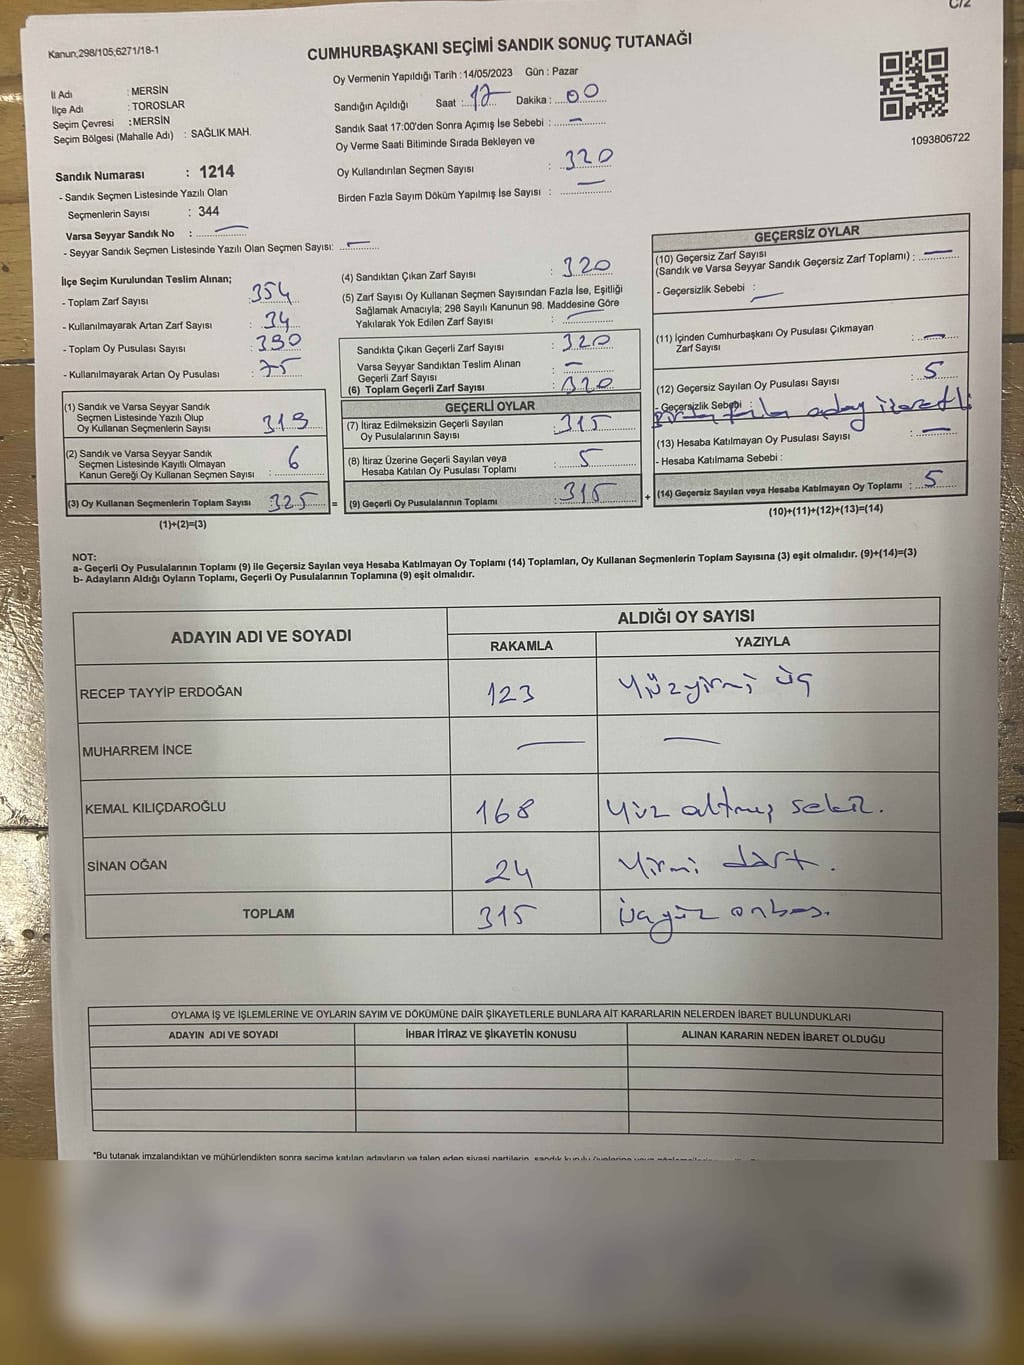 C/2
Kanun;298/105;6271/18-1
CUMHURBAŞKANI SEÇİMİ SANDIK SONUÇ TUTANAĞI
İl Adı : MERSİN
İlçe Adı : TOROSLAR
Seçim Çevresi : MERSİN
Seçim Bölgesi (Mahalle Adı) : SAĞLIK MAH.
Sandık Numarası : 1214
- Sandık Seçmen Listesinde Yazılı Olan
Seçmenlerin Sayısı : 344
Varsa Seyyar Sandık No : —
- Seyyar Sandık Seçmen Listesinde Yazılı Olan Seçmen Sayısı: —
Oy Vermenin Yapıldığı Tarih : 14/05/2023 Gün : Pazar
Sandığın Açıldığı Saat : 17 Dakika : 00
Sandık Saat 17:00'den Sonra Açımış İse Sebebi : —
Oy Verme Saati Bitiminde Sırada Bekleyen ve
Oy Kullandırılan Seçmen Sayısı : 320
Birden Fazla Sayım Döküm Yapılmış İse Sayısı : —
1093806722
İlçe Seçim Kurulundan Teslim Alınan;
- Toplam Zarf Sayısı : 354
- Kullanılmayarak Artan Zarf Sayısı : 34
- Toplam Oy Pusulası Sayısı : 390
- Kullanılmayarak Artan Oy Pusulası : 75
(1) Sandık ve Varsa Seyyar Sandık
Seçmen Listesinde Yazılı Olup
Oy Kullanan Seçmenlerin Sayısı : 319
(2) Sandık ve Varsa Seyyar Sandık
Seçmen Listesinde Kayıtlı Olmayan
Kanun Gereği Oy Kullanan Seçmen Sayısı : 6
(3) Oy Kullanan Seçmenlerin Toplam Sayısı : 325 =
(1)+(2)=(3)
(4) Sandıktan Çıkan Zarf Sayısı : 320
(5) Zarf Sayısı Oy Kullanan Seçmen Sayısından Fazla İse, Eşitliği
Sağlamak Amacıyla; 298 Sayılı Kanunun 98. Maddesine Göre
Yakılarak Yok Edilen Zarf Sayısı : —
Sandıkta Çıkan Geçerli Zarf Sayısı : 320
Varsa Seyyar Sandıktan Teslim Alınan
Geçerli Zarf Sayısı : —
(6) Toplam Geçerli Zarf Sayısı : 320
GEÇERLİ OYLAR
(7) İtiraz Edilmeksizin Geçerli Sayılan
Oy Pusulalarının Sayısı : 315
(8) İtiraz Üzerine Geçerli Sayılan veya
Hesaba Katılan Oy Pusulası Toplamı : 5
(9) Geçerli Oy Pusulalarının Toplamı : 315 +
GEÇERSİZ OYLAR
(10) Geçersiz Zarf Sayısı
(Sandık ve Varsa Seyyar Sandık Geçersiz Zarf Toplamı) : —
- Geçersizlik Sebebi : —
(11) İçinden Cumhurbaşkanı Oy Pusulası Çıkmayan
Zarf Sayısı : —
(12) Geçersiz Sayılan Oy Pusulası Sayısı : 5
- Geçersizlik Sebebi : Birden fazla aday işaretli
(13) Hesaba Katılmayan Oy Pusulası Sayısı : —
- Hesaba Katılmama Sebebi :
(14) Geçersiz Sayılan veya Hesaba Katılmayan Oy Toplamı : 5
(10)+(11)+(12)+(13)=(14)
NOT:
a- Geçerli Oy Pusulalarının Toplamı (9) ile Geçersiz Sayılan veya Hesaba Katılmayan Oy Toplamı (14) Toplamları, Oy Kullanan Seçmenlerin Toplam Sayısına (3) eşit olmalıdır. (9)+(14)=(3)
b- Adayların Aldığı Oyların Toplamı, Geçerli Oy Pusulalarının Toplamına (9) eşit olmalıdır.
ADAYIN ADI VE SOYADI ALDIĞI OY SAYISI
RAKAMLA YAZIYLA
RECEP TAYYİP ERDOĞAN 123 Yüzyirmi üç
MUHARREM İNCE — —
KEMAL KILIÇDAROĞLU 168 Yüz altmış sekiz.
SİNAN OĞAN 24 Yirmi dört.
TOPLAM 315 üçyüz onbeş.
OYLAMA İŞ VE İŞLEMLERİNE VE OYLARIN SAYIM VE DÖKÜMÜNE DAİR ŞİKAYETLERLE BUNLARA AİT KARARLARIN NELERDEN İBARET BULUNDUKLARI
ADAYIN ADI VE SOYADI İHBAR İTİRAZ VE ŞİKAYETİN KONUSU ALINAN KARARIN NEDEN İBARET OLDUĞU
*Bu tutanak imzalandıktan ve mühürlendikten sonra seçime katılan adayların ve talep eden siyasi partilerin,